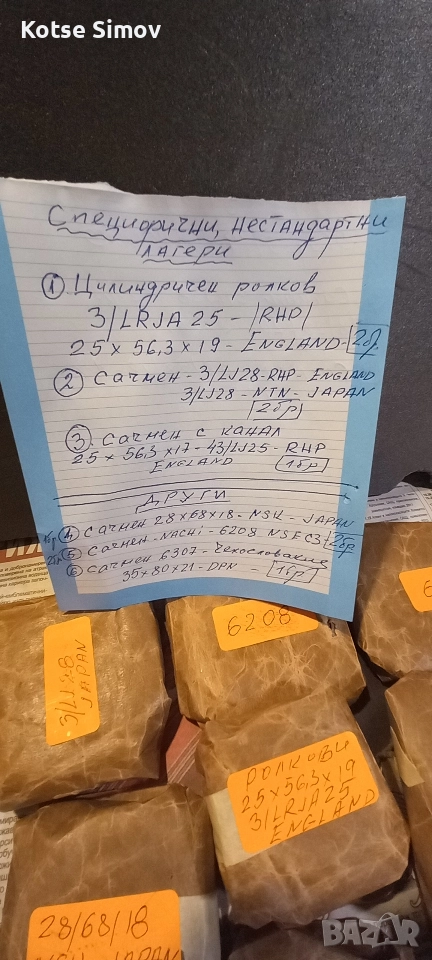 Kotse Simov
Специфични, нестандартни
лагери
① Цилиндричен ролков
3/LRJA 25 - |RHP|
25 x 56,3 x 19 - ENGLAND - 2бр
② Сачмен - 3/LJ28 - RHP - ENGLAND
3/LJ28 - NTN - JAPAN
2бр
③ Сачмен с канал
25 x 56,3 x 17 - 43/LJ25 - RHP
ENGLAND 1бр
ДРУГИ
④ Сачмен 28x68x18 - NSK - JAPAN
2бр ⑤ Сачмен - NACHI - 6208 NSE C3 2бр
⑥ Сачмен 6307 - Чехословакия
35x80x21 - DPN - 1бр
3/LJ28
JAPAN
6208
6
РОЛКОВИ
25x56,3x19
3/LRJA25
ENGLAND
28/68/18
NSK JAPAN
BAZAR